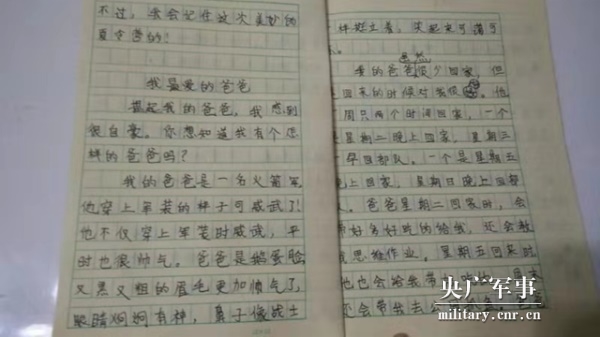 不过，我会记住这次美妙的
夏令营的！
我最爱的爸爸
提起我的爸爸，我感到
很自豪。你想知道我有个怎
样的爸爸吗？
我的爸爸是一名火箭军
他穿上军装的样子可威武了！
他不仅穿上军装时威武，平
时也很帅气。爸爸是鹅蛋脸
又黑又粗的眉毛更加帅气了，
眼睛炯炯有神，鼻子像战士
一样挺立着，笑起来可
虽然
我的爸爸很少回家，但
回来的时候对我很
周只两个时间回家，一个
是星期二晚上回家，星期三
早回部队。一个是星期五
晚上回家，星期日晚上回部
爸爸星期二回家时，会
带好多好吃的给我，还会教
我思维作业。星期五回来时
他也会给我带
还会带我去公
央广军事
military.cnr.cn